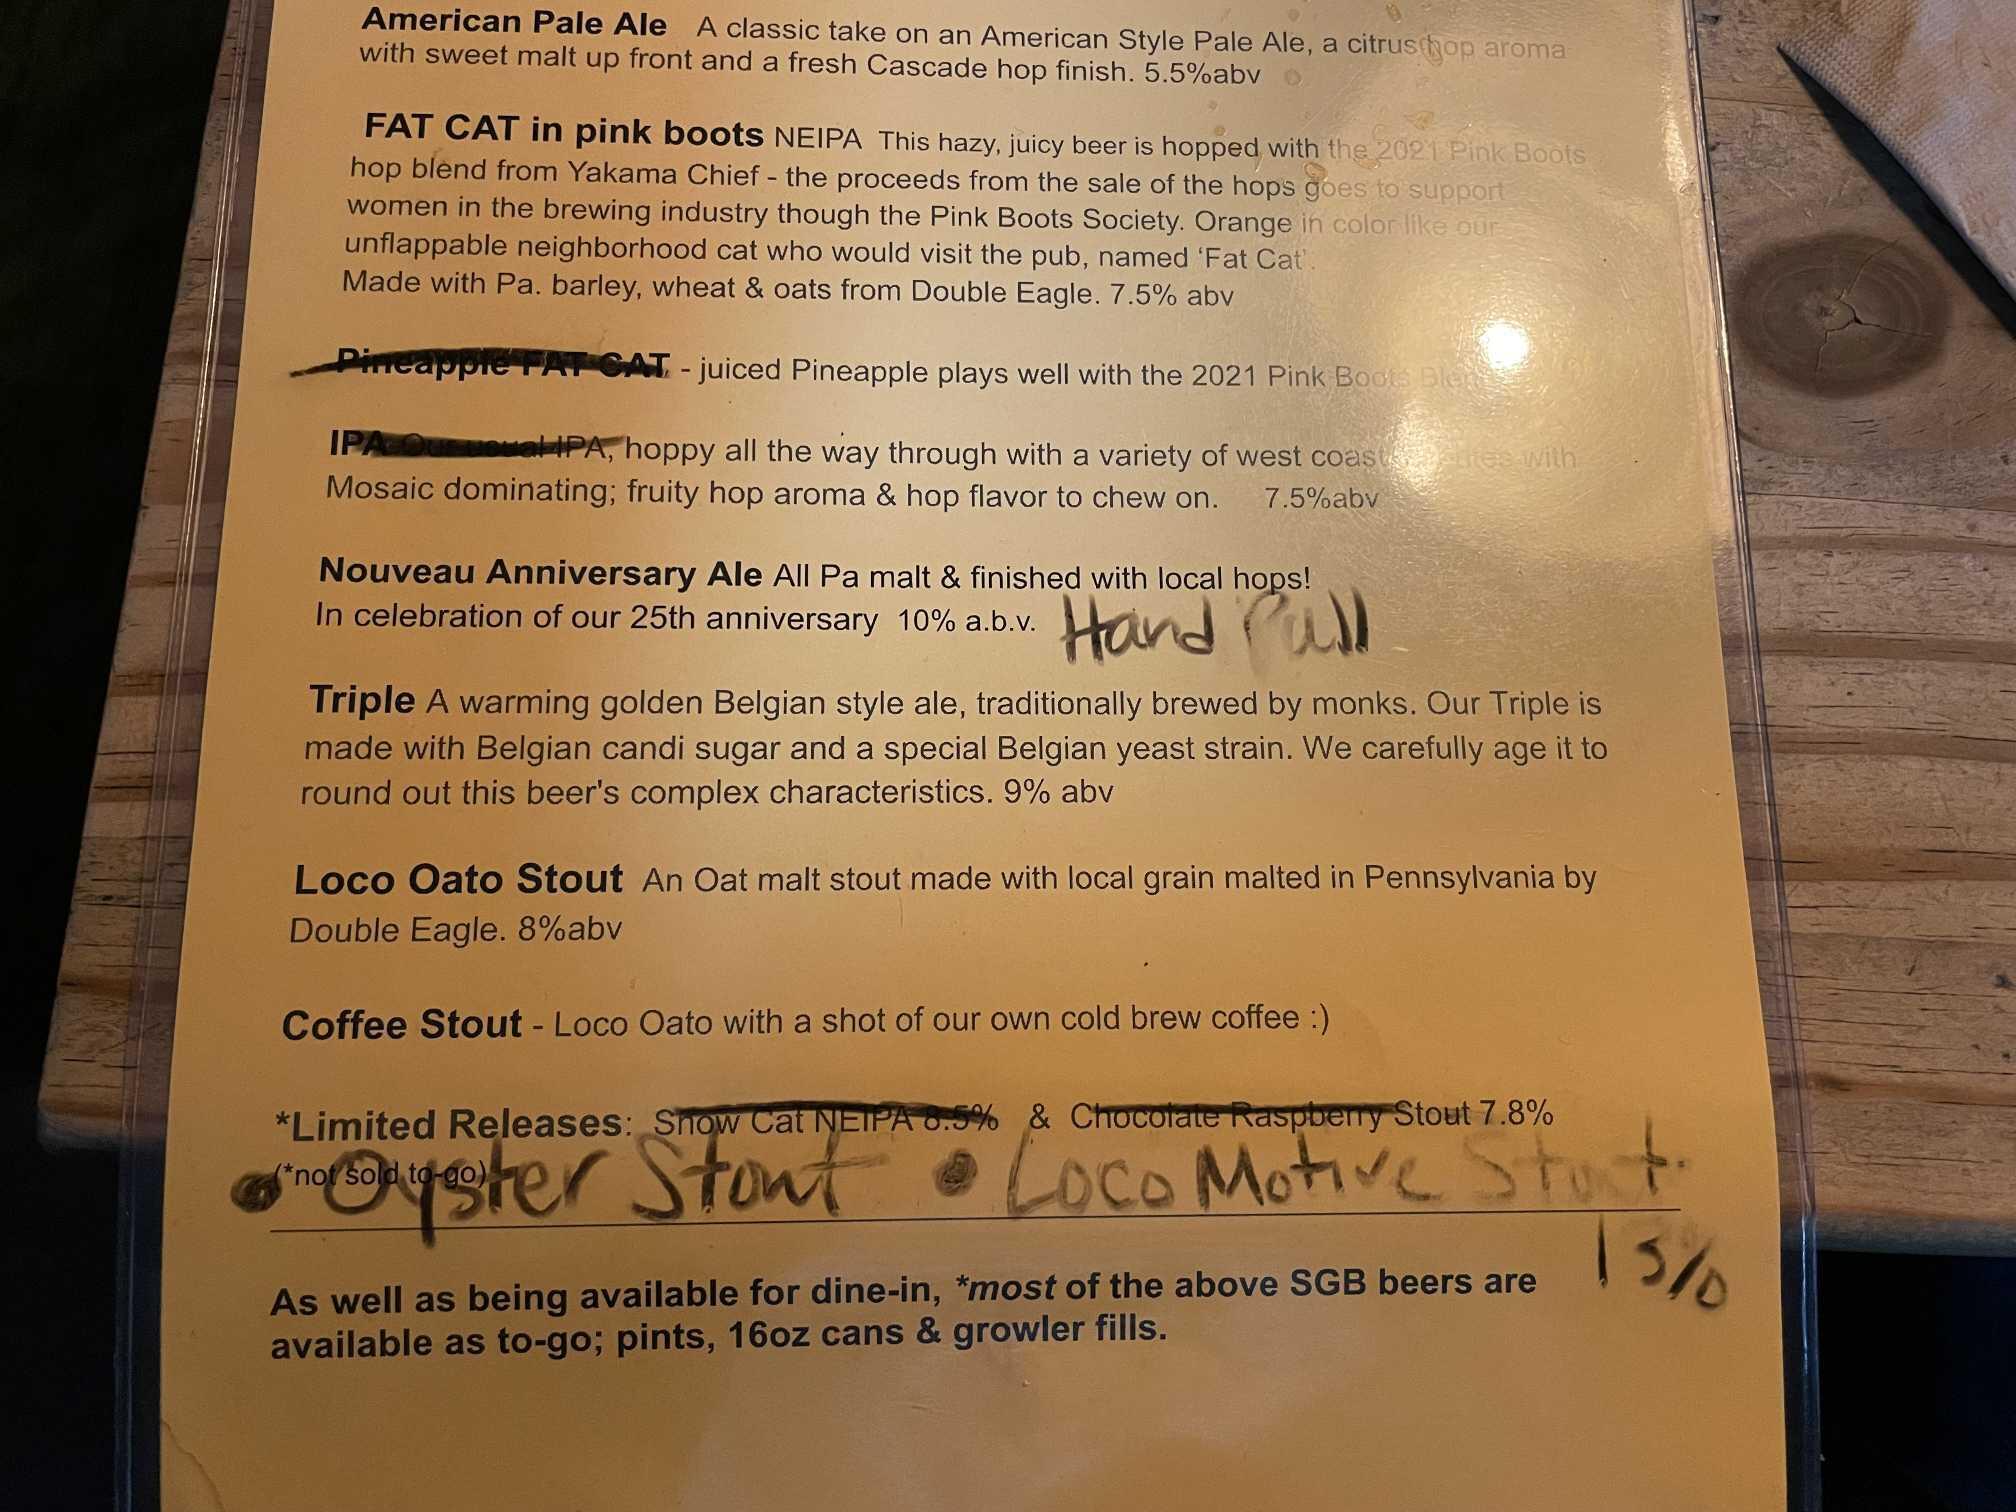 American Pale Ale A classic take on an American Style Pale Ale, a citrus hop aroma
with sweet malt up front and a fresh Cascade hop finish. 5.5%abv
FAT CAT in pink boots NEIPA This hazy, juicy beer is hopped with the 2021 Pink Boots
hop blend from Yakama Chief - the proceeds from the sale of the hops goes to support
women in the brewing industry though the Pink Boots Society. Orange in color like our
unflappable neighborhood cat who would visit the pub, named ‘Fat Cat’.
Made with Pa. barley, wheat & oats from Double Eagle. 7.5% abv
Pineapple FAT CAT - juiced Pineapple plays well with the 2021 Pink Boots Blend
IPA Our usual IPA, hoppy all the way through with a variety of west coast with
Mosaic dominating; fruity hop aroma & hop flavor to chew on. 7.5%abv
Nouveau Anniversary Ale All Pa malt & finished with local hops!
In celebration of our 25th anniversary 10% a.b.v. Hand Pull
Triple A warming golden Belgian style ale, traditionally brewed by monks. Our Triple is
made with Belgian candi sugar and a special Belgian yeast strain. We carefully age it to
round out this beer's complex characteristics. 9% abv
Loco Oato Stout An Oat malt stout made with local grain malted in Pennsylvania by
Double Eagle. 8%abv
Coffee Stout - Loco Oato with a shot of our own cold brew coffee :)
*Limited Releases: Snow Cat NEIPA 8.5% & Chocolate Raspberry Stout 7.8%
(*not sold to-go)
• Oyster Stout • Loco Motive Stout
13%
As well as being available for dine-in, *most of the above SGB beers are
available as to-go; pints, 16oz cans & growler fills.